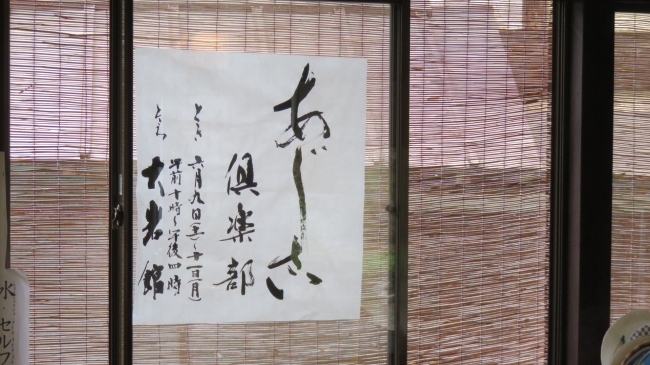 あじさい
倶楽部
とき 六月九日(土)〜十一日(月)
午前十時〜午後四時
ところ 大岩館
水・セルフ